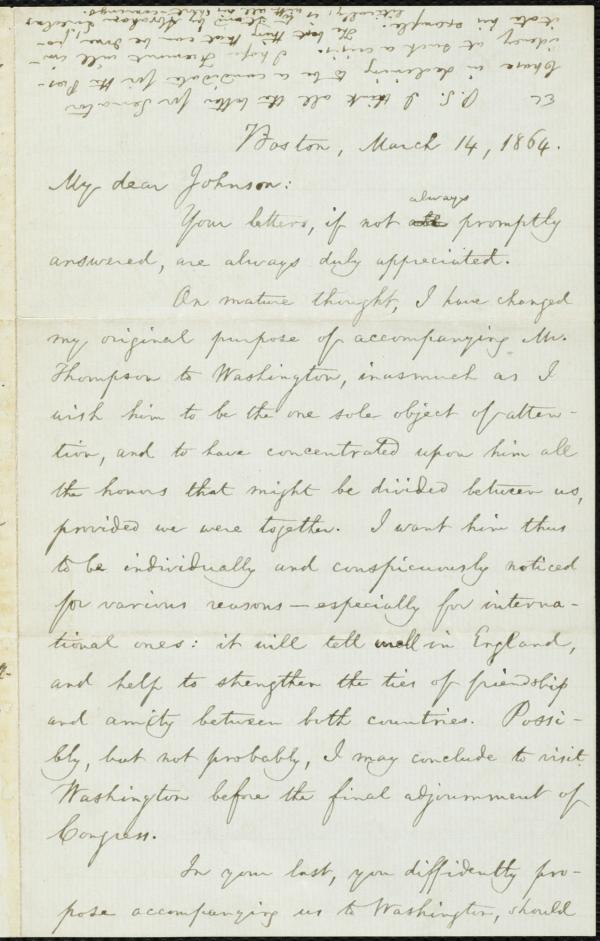 P.S. I think all the better for Senator
Chase in declining to be a candidate for the Pres-
idency at such a crisis. I hope Fremont will im-
itate his example. The best thing that can be done, po-
litically, is to stand by Abraham Lincoln
with all
Boston, March 14, 1864.
My dear Johnson:
always
Your letters, if not promptly
answered, are always duly appreciated.
On mature thought, I have changed
my original purpose of accompanying Mr.
Thompson to Washington, inasmuch as I
wish him to be the one sole object of atten-
tion, and to have concentrated upon him all
the honors that might be divided between us,
provided we were together. I want him thus
to be individually and conspicuously noticed
for various reasons — especially for interna-
tional ones: it will tell well in England,
and help to strengthen the ties of friendship
and amity between both countries. Possi-
bly, but not probably, I may conclude to visit
Washington before the final adjournment of
Congress.
In your last, you diffidently pro-
pose accompanying us to Washington, should